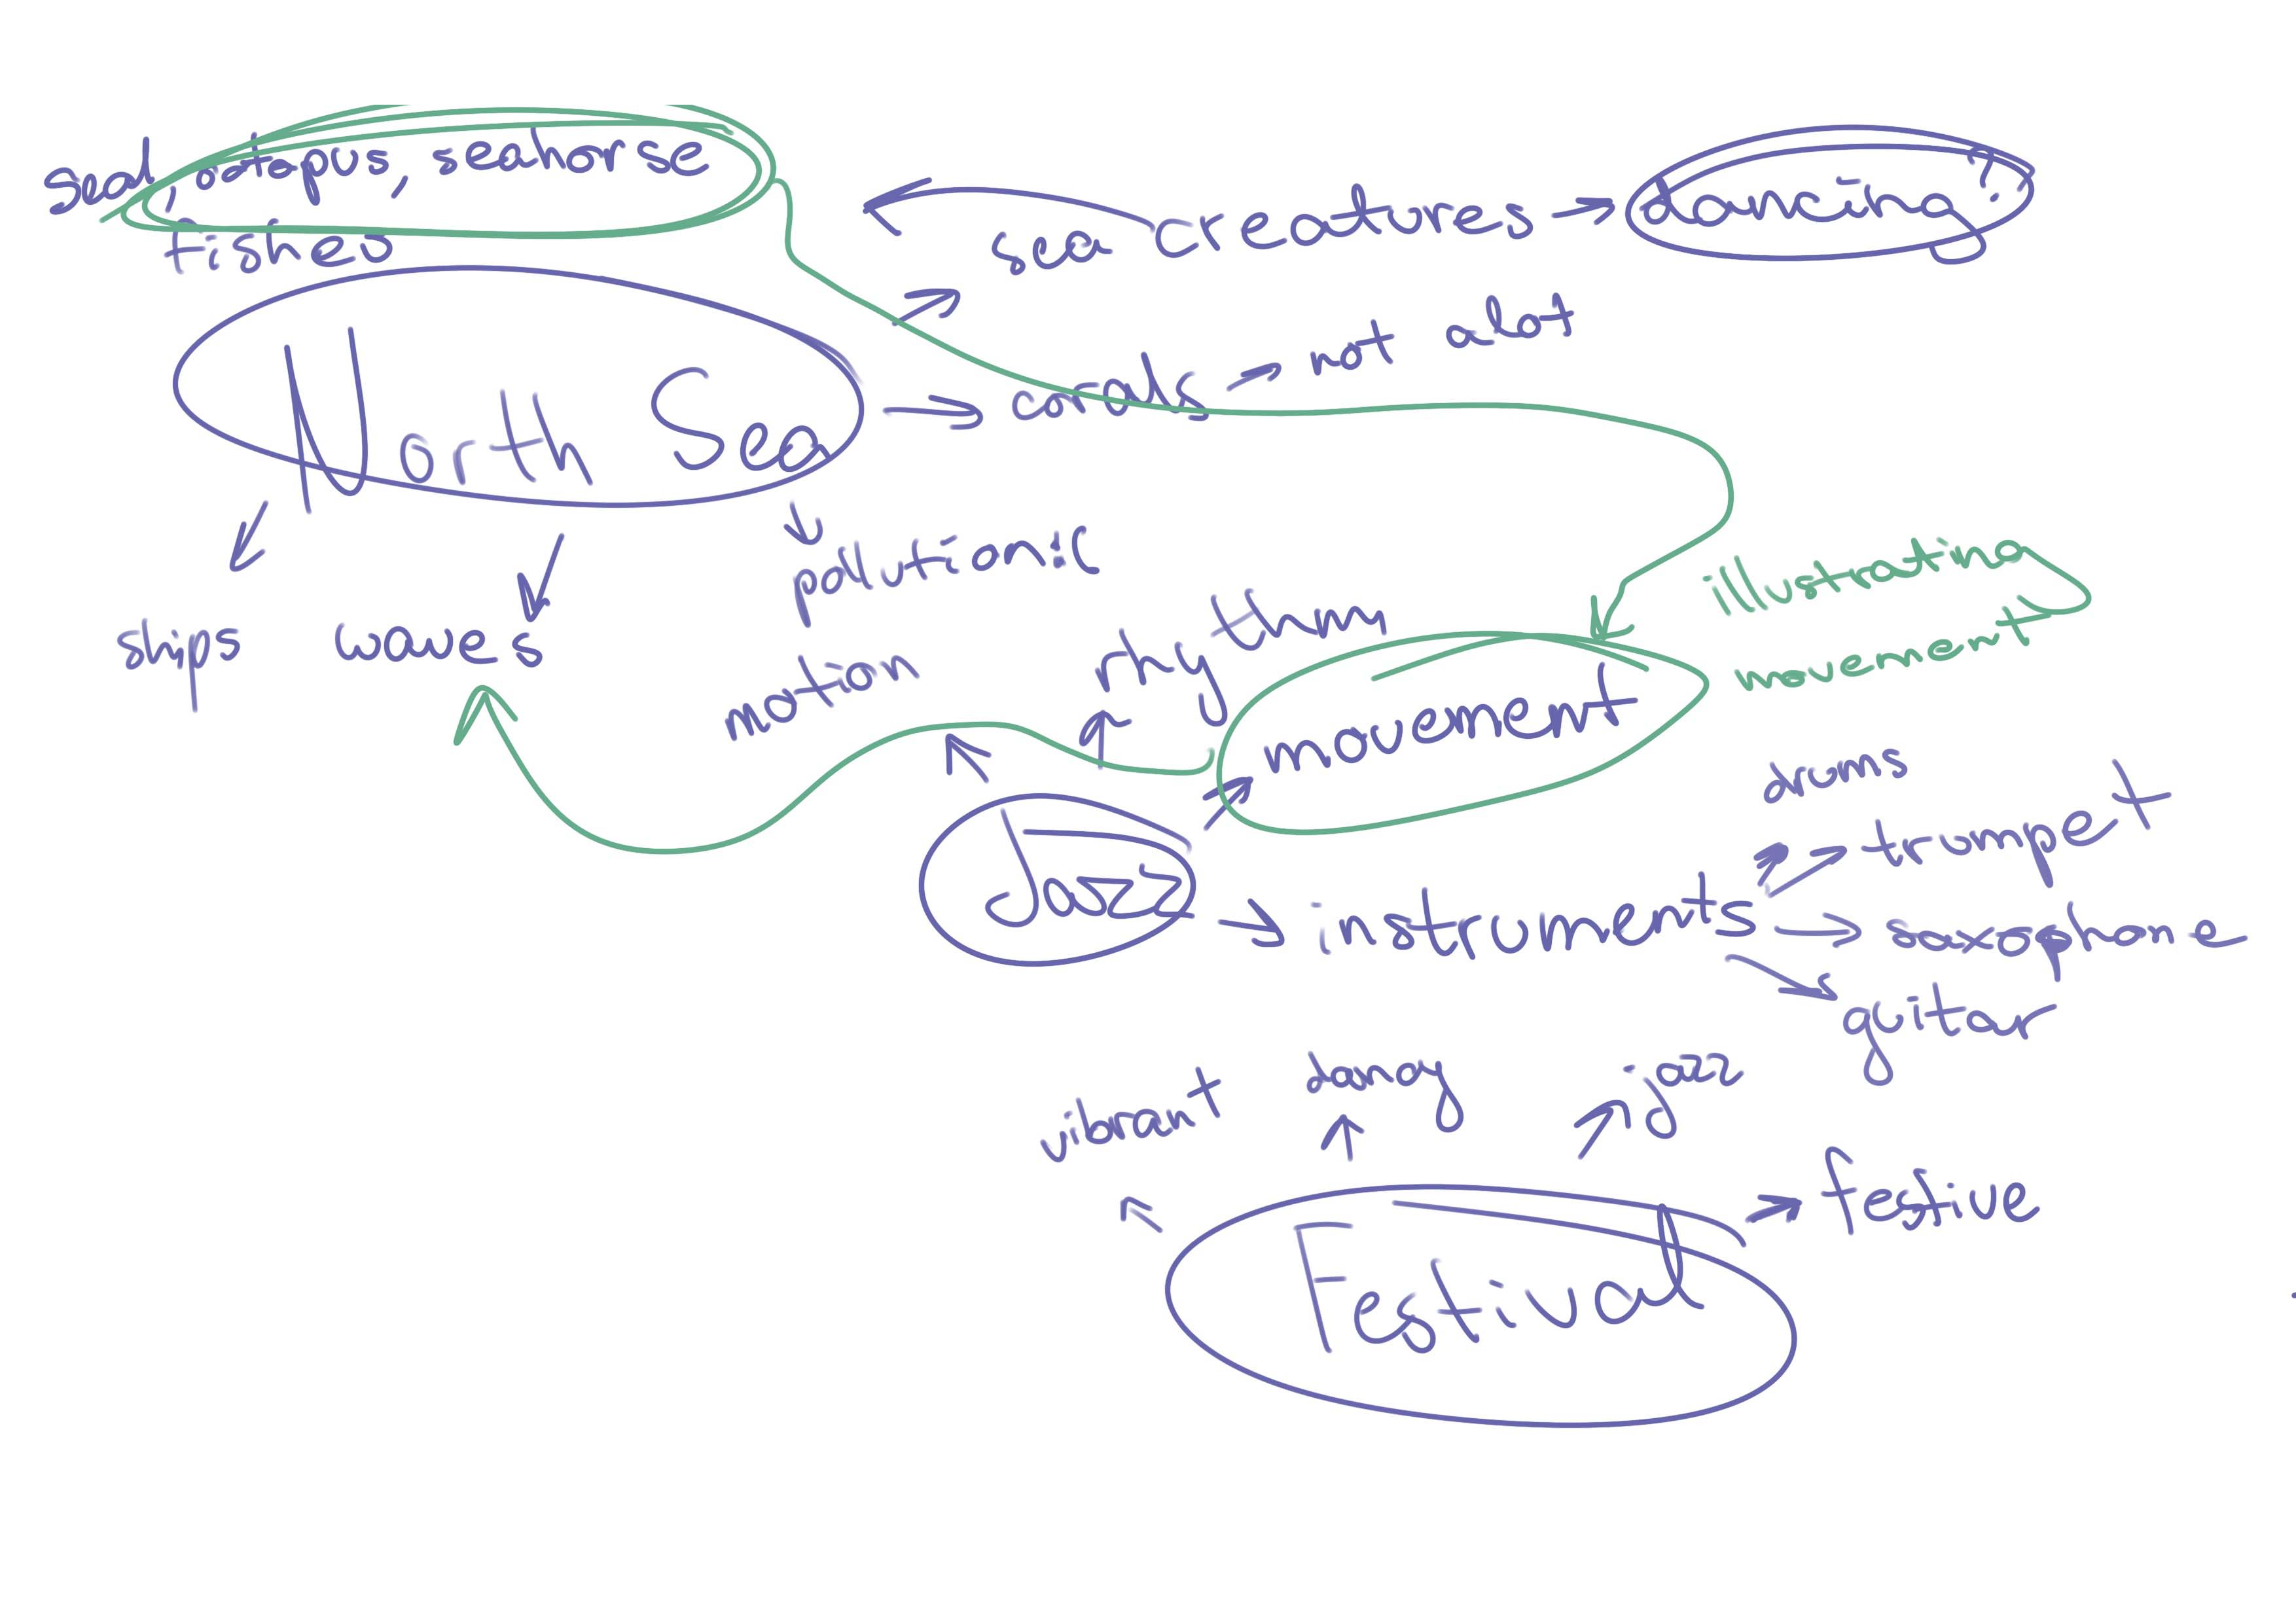 seal, octopus, seahorse
fishes
sea creatures → dancing?
North Sea
corals → not alot
ships
waves
motion
rhythm
movement
illustrating
movement
Jazz
instruments
drums
trumpet
saxophone
guitar
vibrant
jazz
festive
Festival